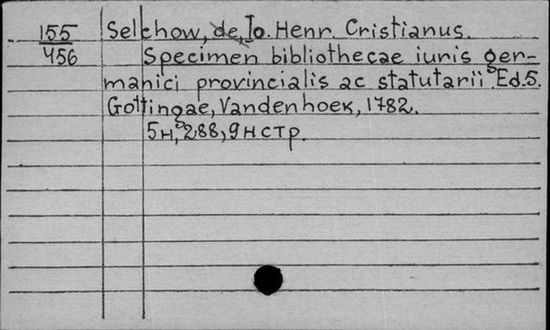 155
456
Selchow, de, Io. Henr. Cristianus.
Specimen bibliothecae iuris ger-
manici provincialis ac statutarii. Ed.5.
Gottingae, Vandenhoek, 1782.
5н, 288, 9 н стр.